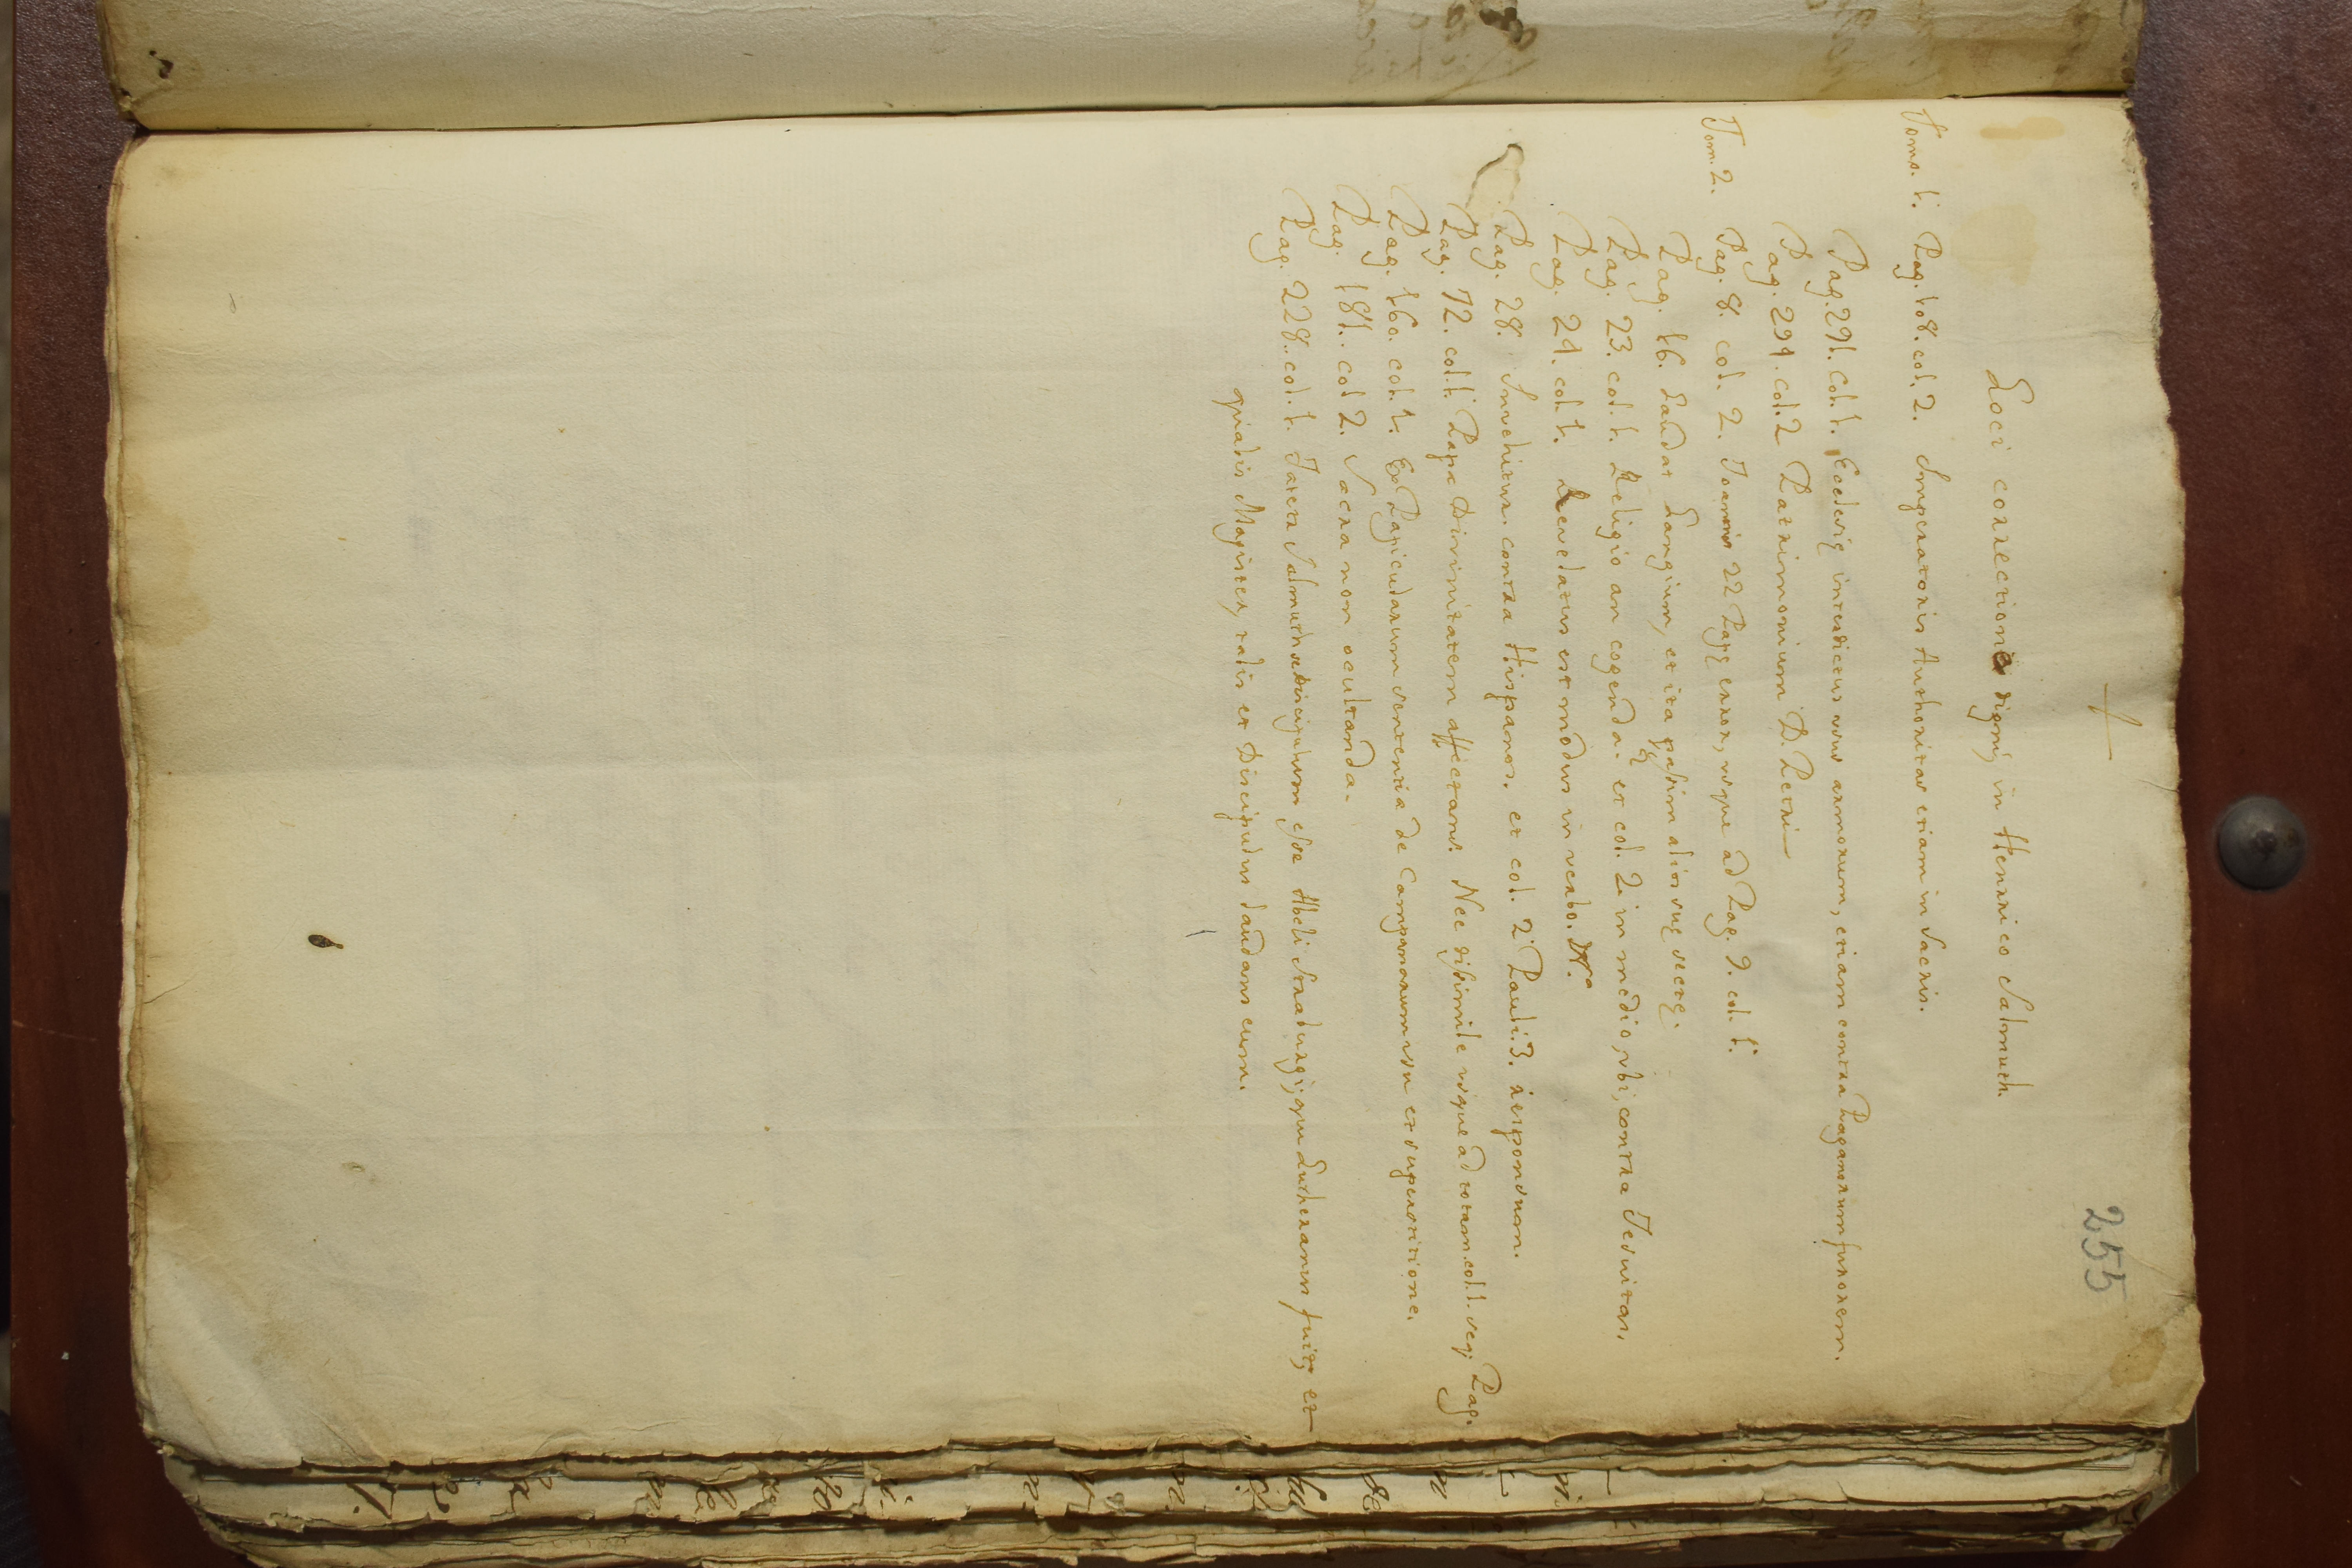 255
Loci correctione digni, in Henrico Salmuth.
Tomo. 1. Pag. 108. col. 2. Imperatoris Authoritas etiam in Sacris.
Pag. 291. Col. 1. Ecclesię interdictus usus armorum, etiam contra Paganorum furorem.
Pag. 294. col. 2 Patrimonium D. Petri
Tom. 2. Pag. 8. col. 2. Joannis 22 Papę error, usque ad Pag. 9. col. 1.
Pag. 16. Laudat Langium, et ita passim alios suę sectę.
Pag. 23. col. 1. Religio an cogenda. et col. 2. in medio, ubi, contra Jesuitas.
Pag. 24. col. 1. Revelatus est modus in verbo.
Pag. 28. Invehitur. contra Hispanos. et col. 2. Pauli. 3. responsum.
Pag. 72. col. 1. Papæ Divinitatem affectans. Nec dissimile usque ad totam. col. 1. seq; Pag.
Pag. 160. col. 1. Ex Papicularum sententia de Campanarum usu et superstitione.
Pag. 181. col 2. Sacra non ocultanda.
Pag. 228. col. 1. Fatetur Salmuth se discipulum esse Abeli Straburgj; qui Lutheranus fuit; et
qualis Magister, talis et Discipulus laudans eum.